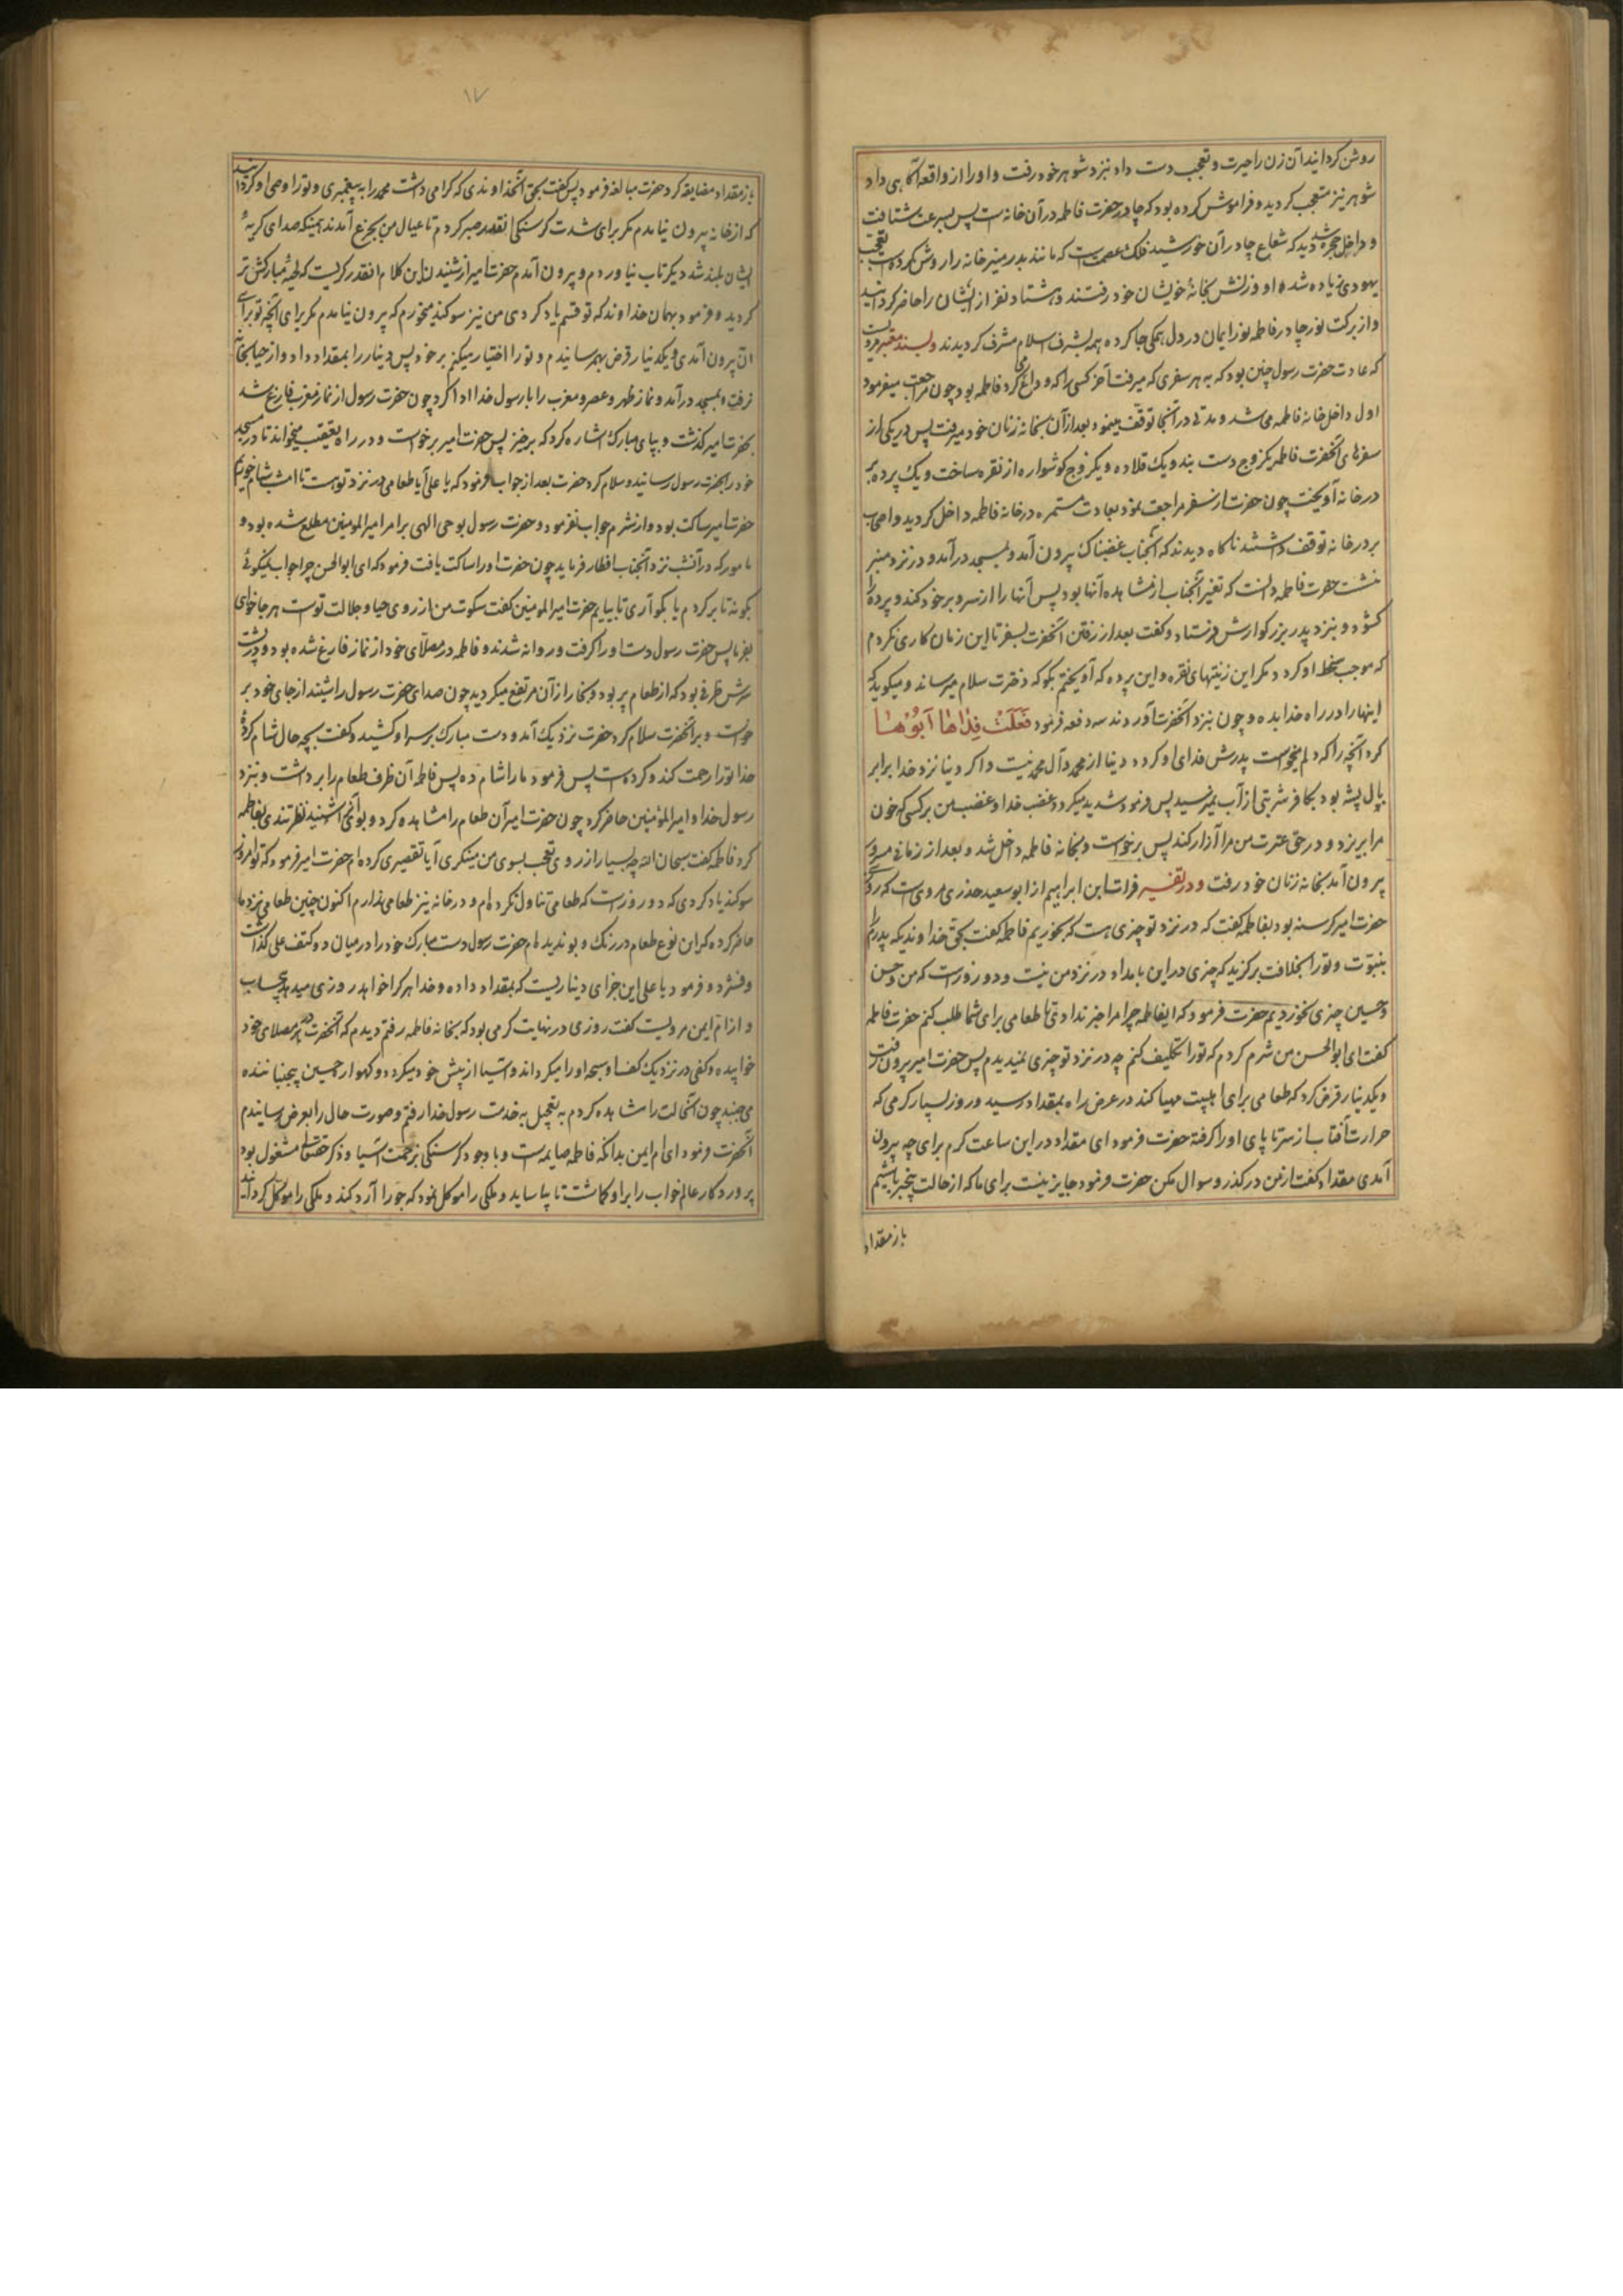 روشن کردانید آن زن را حیرت و تعجب دست داد نزد شوهر خود رفت و او را از واقعه آکاهی داد
شوهر نیز متعجب کردید و فراموش کرده بود که چادر حضرت فاطمه در آن خانه است پس بسرعت شتافت
و داخل حجره شد دید که شعاع چادر آن خورشید فلک عصمت است که مانند بدر منیر خانه را روشن کرده است تعجب
یهودی زیاده شد و او و زنش بخانهٔ خویشان خود رفتند و هشتاد نفر از ایشان را حاضر کردانید
و از برکت نور چادر فاطمه نور ایمان در دل همکی جا کرده همه بشرف اسلام مشرف کردیدند و بسند معتبر مرویست
که عادت حضرت رسول چنین بود که به هر سفری که میرفت آخر کسی را که وداع می کرد فاطمه بود چون مراجعت میفرمود
اول داخل خانه فاطمه می شد و مدتی در آنجا توقف مینمود بعد از آن بخانه زنان خود میرفت پس در یکی از
سفرهای آنحضرت فاطمه یکزوج دست بند و یک قلاده و یکزوج کوشواره از نقره ساخت و یک پرده بر
در خانه آویخت چون حضرت از سفر مراجعت نمود بعادت مستمره در خانه فاطمه داخل کردید و اصحاب
بر در خانه توقف داشتند ناکاه دیدند که آنجناب غضبناک بیرون آمد و بمسجد درآمد و در نزد منبر
نشست حضرت فاطمه دانست که تغیر آنجناب از مشاهده آنها بود پس آنها را از سر و بر خود کند و پرده را
کشود و بنزد پدر بزرکوارش فرستاد و کفت بعد از رفتن آنحضرت بسفر تا این زمان کاری نکردم
که موجب سخط او کردد مکر این زینتهای نقره و این پرده که آویختم بکو که دخترت سلام میرساند و میکوید که
اینها را در راه خدا بده و چون بنزد آنحضرت آوردند سه دفعه فرمود فَعَلَتْ فِدٰاهٰا اَبُوُهٰا
کرد آنچه را که دلم میخواست پدرش فدای او کردد دنیا از محمد و آل محمد نیست و اکر دنیا نزد خدا برابر
بال پشه بود بکافر شربتی از آب نمیرسید پس فرمود شدید میکردد غضب خدا و غضب من بر کسی که خون
مرا بریزد و در حق عترت من مرا آزار کند پس برخواست و بخانه فاطمه داخل شد و بعد از زمانی
بیرون آمد بخانه زنان خود رفت و در تفسیر فرات ابن ابراهیم از ابو سعید خدری مرویست که روزی
حضرت امیر کرسنه بود بفاطمه کفت که در نزد تو چیزی هست که بخوریم فاطمه کفت بحق خداوندیکه پدرم را
بنبوت و تو را بخلافت برکزید که چیزی در این بامداد در نزد من نیست و دو روز است که من و حسن
و حسین چیزی نخوردیم حضرت فرمود که ایفاطمه چرا مرا خبر ندادی تا طعامی برای شما طلب کنم حضرت فاطمه
کفت ای ابوالحسن من شرم کردم که تو را تکلیف کنم چه در نزد تو چیزی نمیدیدم پس حضرت امیر بیرون رفت
و یکدینار قرض کرد که طعامی برای اهلبیت مهیا کند در عرض راه بمقداد رسید و روز بسیار کرمی که
حرارت آفتاب از سر تا پای او را کرفته حضرت فرمود ای مقداد در این ساعت کرم برای چه بیرون
آمدی مقداد کفت از من درکذر و سوال مکن حضرت فرمود جایز نیست برای ما که از حالت بیخبر باشیم
باز مقداد
۱۷
باز مقداد مضایقه کرد حضرت مبالغه فرمود پس کفت بحق آنخداوندی که کرامی داشت محمد را به پیغمبری و تو را وصی او کردانید
که از خانه بیرون نیامدم مکر برای شدت کرسنکی انقدر صبر کردم تا عیال من بجزع آمدند همینکه صدای کریهٔ
ایشان بلند شد دیکر تاب نیاوردم و بیرون آمدم حضرت امیر از شنیدن این کلام انقدر کریست که لحیهٔ مبارکش تر
کردید و فرمود بهمان خداوند که تو قسم یاد کردی من نیز سوکند میخورم که بیرون نیامدم مکر برای آنچه تو برای
آن بیرون آمدی و یکدینار قرض بهم رسانیدم و تو را اختیار میکنم بر خود پس دینار را بمقداد داد و از حیا بخانه
نرفت و بمسجد درآمد و نماز ظهر و عصر و مغرب را با رسول خدا ادا کرد چون حضرت رسول از نماز مغرب فارغ شد
بحضرت امیر کذشت و بپای مبارک اشاره کرد که برخیز پس حضرت امیر برخواست و در راه تعقیب میخواند تا در مسجد
خود را بحضرت رسول رسانید و سلام کرد حضرت بعد از جواب فرمود که یا علی آیا طعامی در نزد تو هست تا امشب شام خوریم
حضرت امیر ساکت بود و از شرم جواب نفرمود و حضرت رسول بوحی الهی بر امر امیر المومنین مطلع شده بود و
مامور که در آنشب نزد آنجناب افطار فرماید چون حضرت او را ساکت یافت فرمود که ای ابوالحسن چرا جواب نمیکوئی
بکو نه تا برکردم یا بکو آری تا بیایم حضرت امیر المومنین کفت سکوت من از روی حیا و جلالت توست هر جا خواهی
بفرما پس حضرت رسول دست او را کرفت و روانه شدند و فاطمه در مصلّای خود از نماز فارغ شده بود و در پشت
سرش ظرفی بود که از طعام پر بود و بخار از آن مرتفع میکردید چون صدای حضرت رسول را شنید از جای خود بر
خواست و بر آنحضرت سلام کرد حضرت نزدیک آمد و دست مبارک بر سر او کشید و کفت بچه حال شام کردهٔ
خدا تو را رحمت کند و کرده است پس فرمود ما را شام ده پس فاطمه آن ظرف طعام را برداشت و بنزد
رسول خدا و امیر المؤمنین حاضر کرد چون حضرت امیر آن طعام را مشاهده کرد و بوی آنرا شنید نظر تندی بفاطمه
کرد فاطمه کفت سبحان الله چه بسیار از روی تعجب بسوی من مینکری آیا تقصیری کرده ام حضرت امیر فرمود که تو امروز
سوکند یاد کردی که دو روز است که طعامی تناول نکرده ام و در خانه نیز طعامی ندارم اکنون چنین طعامی نزد ما
حاضر کرده که این نوع طعام در رنک و بو ندیده ام حضرت رسول دست مبارک خود را در میان دو کتف علی کذاشت
و فشرد و فرمود یا علی این جزای دیناریست که بمقداد داده و خدا هر کرا خواهد روزی میدهد بیحساب
و از ام ایمن مرویست کفت روزی در نهایت کرمی بود که بخانه فاطمه رفتم دیدم که آنحضرت در مصلای خود
خوابیده و کفی در نزدیک کف او سبحه او را میکرداند و آسیا از پیش خود میکردد و کهواره حسین بیجنباننده
می جنبد چون آنحالت را مشاهده کردم به تعجیل به خدمت رسول خدا رفتم و صورت حال را بعرض رسانیدم
آنحضرت فرمود ای ام ایمن بدانکه فاطمه صایمه است و با وجود کرسنکی بزحمت آسیا و ذکر حقتعالی مشغول بود
پروردکار عالم خواب را بر او کماشت تا بیاساید و ملکی را موکل نمود که جو را آرد کند و ملکی را موکل کردانید